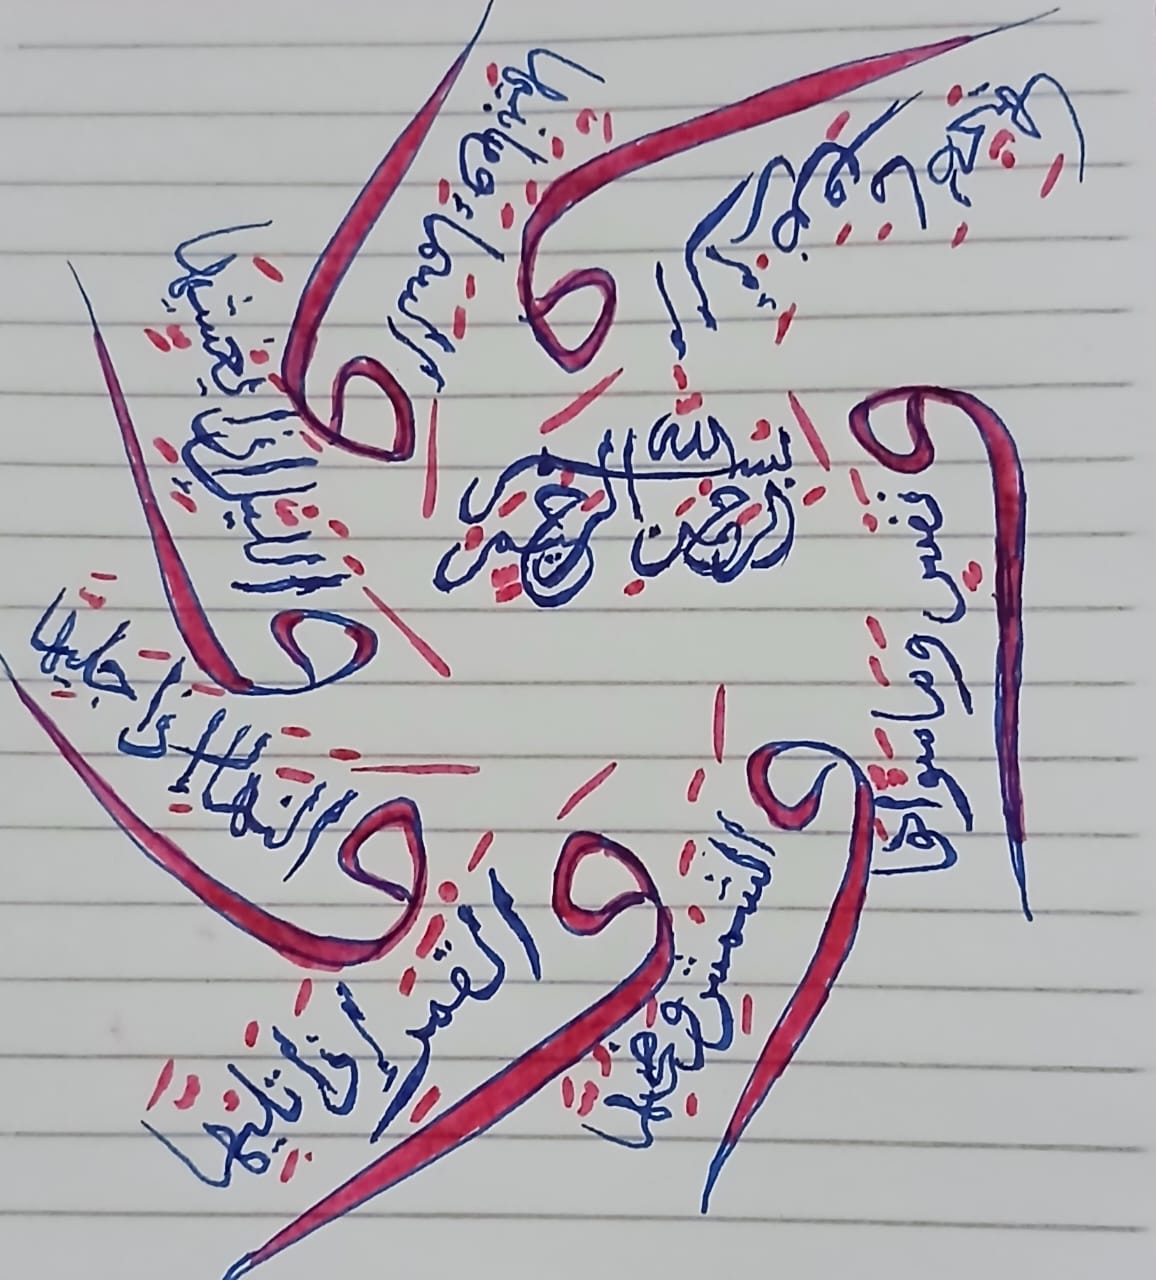 بسم الله الرحمن الرحيم
والشمس وضحيها
والقمر اذا تليها
والنهار اذا جليها
واليل اذا يغشيها
والسماء وما بنيها
والارض وما طحيها
ونفس وما سويها